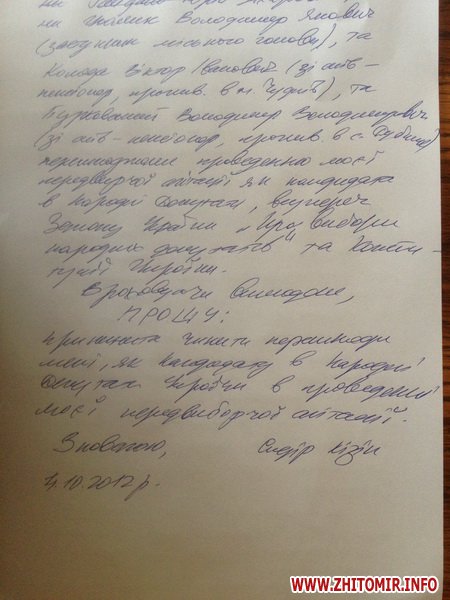 Володимир Янович
(заступник міського голови), та
Колода Віктор Іванович (зі слів –
пенсіонер, прожив. в м. Чуднів), та
Володимир Володимирович
(зі слів – пенсіонер, прожив. в с.
перешкоджали проведенню моєї
передвиборчої агітації як кандидата
в народні депутати, всупереч
Закону України „Про вибори
народних депутатів" та Консти-
туції України.
Враховуючи викладене,
ПРОШУ:
припинити чинити перешкоди
мені, як кандидату в народні
депутати України в проведенні
моєї передвиборчої агітації.
З повагою, Сидір Кізін
4.10.2012 р.
WWW.ZHITOMIR.INFO